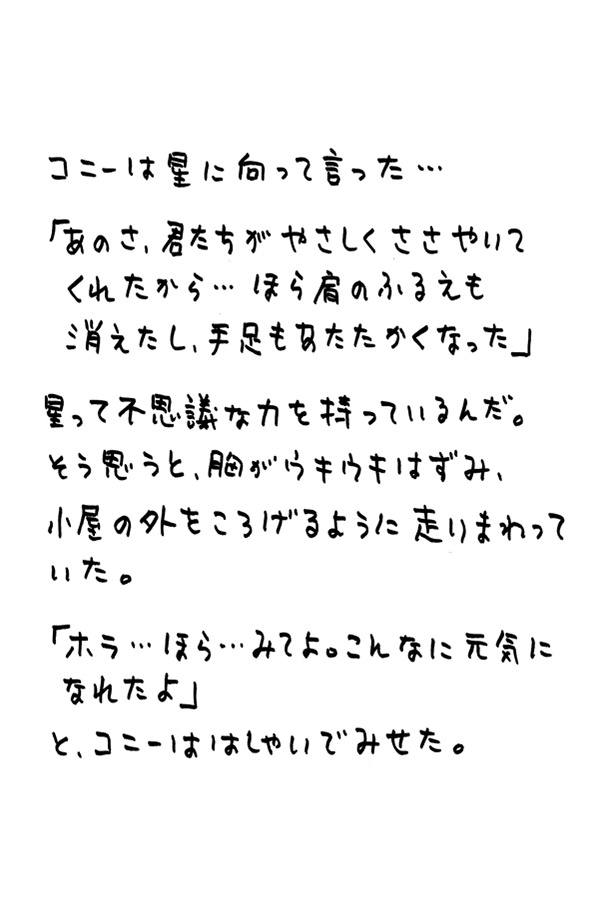 コニーは星に向って言った…
「あのさ、君たちがやさしくささやいて
くれたから…ほら肩のふるえも
消えたし、手足もあたたかくなった」
星って不思議な力を持っているんだ。
そう思うと、胸がウキウキはずみ、
小屋の外をころげるように走りまわって
いた。
「ホラ…ほら…みてよ。こんなに元気に
なれたよ」
と、コニーははしゃいでみせた。